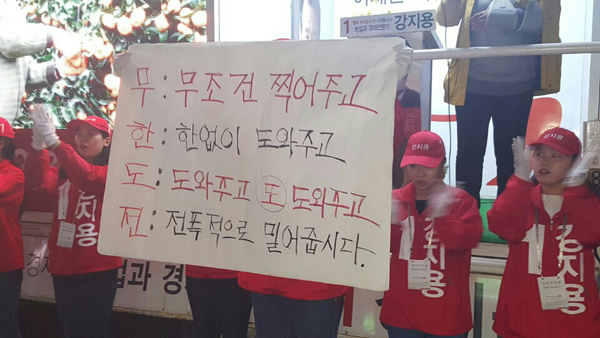 1
강지용
무 : 무조건 찍어주고
한 : 한없이 도와주고
도 : 도와주고 또 도와주고
전 : 전폭적으로 밀어줍시다.
강지용
1
강지용
1
강지용